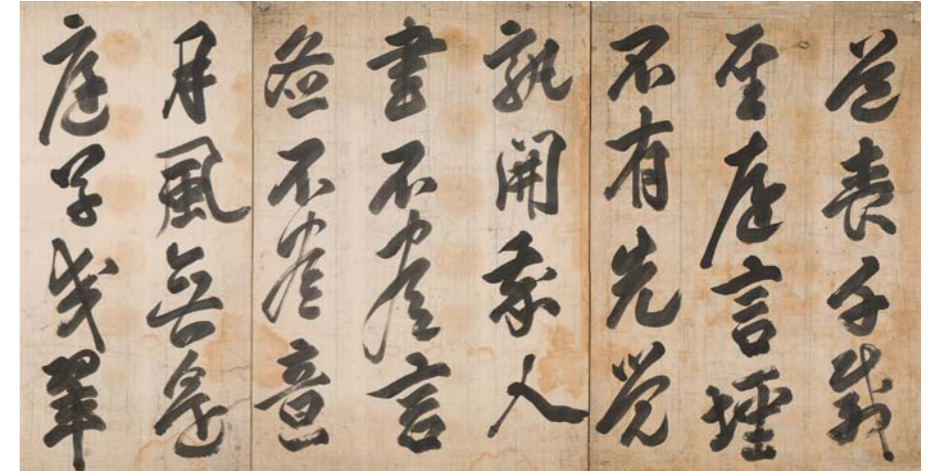 道喪千載
聖遠言堙
不有先覺
孰開我人
書不盡言
圖不盡意
月風無邊
庭草交翠